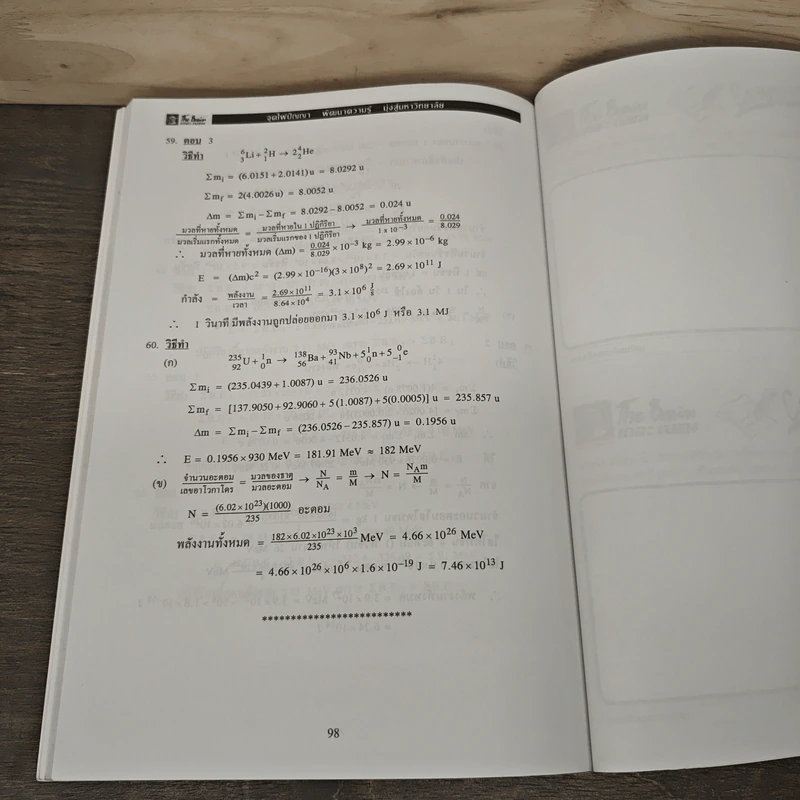 The Brain จุดไฟปัญญา พัฒนาความรู้ มุ่งสู่มหาวิทยาลัย
59. ตอบ 3
วิธีทำ ⁶₃Li + ²₁H → 2⁴₂He
Σmᵢ = (6.0151 + 2.0141) u = 8.0292 u
Σm_f = 2(4.0026 u) = 8.0052 u
Δm = Σmᵢ − Σm_f = 8.0292 − 8.0052 = 0.024 u
มวลที่หายทั้งหมด/มวลเริ่มแรกทั้งหมด = มวลที่หายใน 1 ปฏิกิริยา/มวลเริ่มแรกของ 1 ปฏิกิริยา → มวลที่หายทั้งหมด/1 x 10⁻³ = 0.024/8.029
∴ มวลที่หายทั้งหมด (Δm) = 0.024/8.029 × 10⁻³ kg = 2.99 × 10⁻⁶ kg
E = (Δm)c² = (2.99 × 10⁻¹⁶)(3 × 10⁸)² = 2.69 × 10¹¹ J
กำลัง = พลังงาน/เวลา = 2.69 × 10¹¹/8.64 × 10⁴ = 3.1 × 10⁶ J/s
∴ 1 วินาที มีพลังงานถูกปล่อยออกมา 3.1 × 10⁶ J หรือ 3.1 MJ
60. วิธีทำ
(ก) ²³⁵₉₂U + ¹₀n → ¹³⁸₅₆Ba + ⁹³₄₁Nb + 5¹₀n + 5⁰₋₁e
Σmᵢ = (235.0439 + 1.0087) u = 236.0526 u
Σm_f = [137.9050 + 92.9060 + 5(1.0087) + 5(0.0005)] u = 235.857 u
Δm = Σmᵢ − Σm_f = (236.0526 − 235.857) u = 0.1956 u
∴ E = 0.1956 × 930 MeV = 181.91 MeV ≈ 182 MeV
(ข) จำนวนอะตอม/เลขอาโวกาโดร = มวลของธาตุ/มวลอะตอม → N/N_A = m/M → N = N_A m/M
N = (6.02 × 10²³)(1000)/235 อะตอม
พลังงานทั้งหมด = 182 × 6.02 × 10²³ × 10³/235 MeV = 4.66 × 10²⁶ MeV
= 4.66 × 10²⁶ × 10⁶ × 1.6 × 10⁻¹⁹ J = 7.46 × 10¹³ J
**************************
98